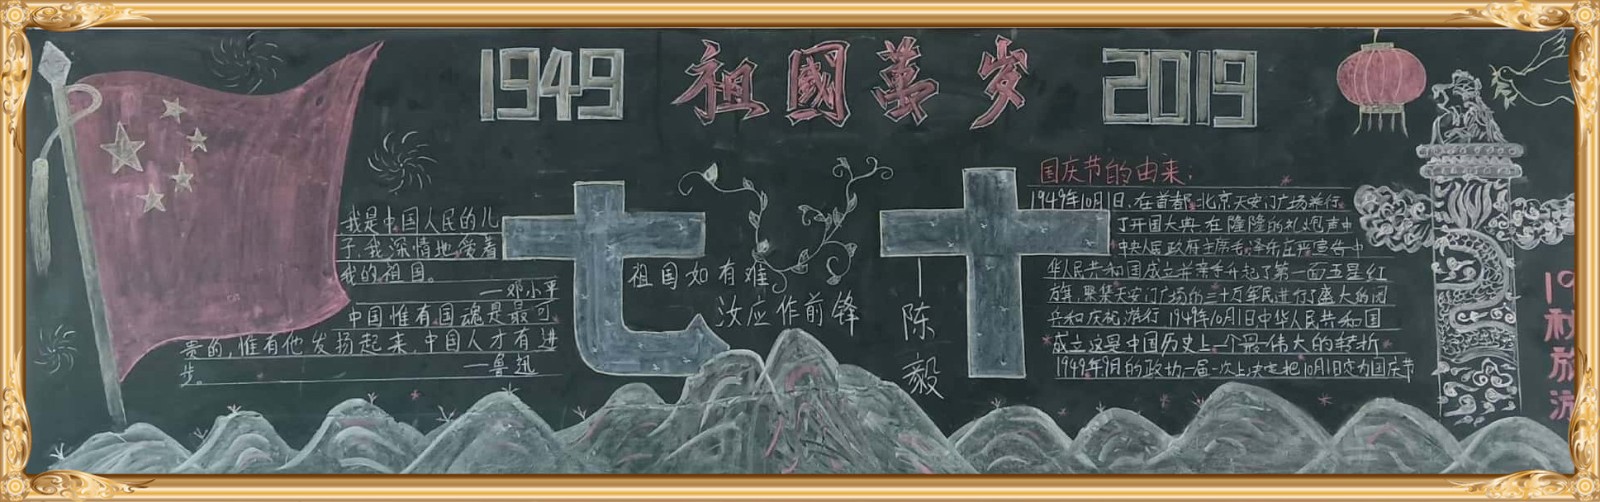 1949 祖國萬岁 2019
我是中国人民的儿
子,我深情地爱着
我的祖国。
——邓小平
中国惟有国魂是最可
贵的,惟有他发扬起来,中国人才有进
步。
——鲁迅
七十
祖国如有难
汝应作前锋
——陈毅
国庆节的由来:
1949年10月1日,在首都北京天安门广场举行
了开国大典,在隆隆的礼炮声中
中央人民政府主席毛泽东庄严宣告中
华人民共和国成立并亲手升起了第一面五星红
旗,聚集天安门广场的三十万军民进行了盛大的阅
兵和庆祝游行 1949年10月1日中华人民共和国
成立这是中国历史上一个最伟大的转折
1949年9月的政协一届一次上决定把10月1日定为国庆节
19秋旅游